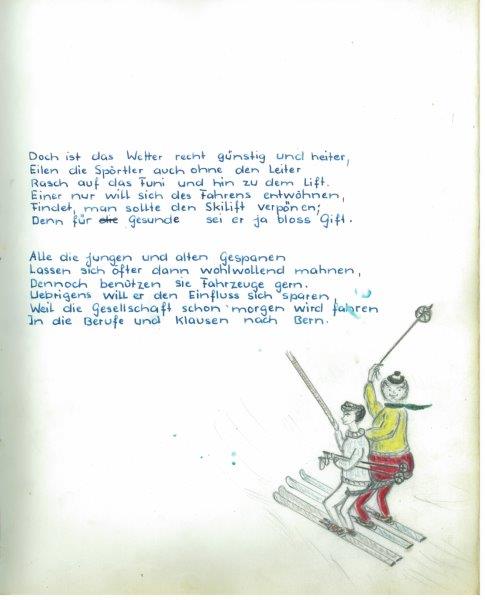 Doch ist das Wetter recht günstig und heiter,
Eilen die Sportler auch ohne den Leiter
Rasch auf das Funi und hin zu dem Lift.
Einer nur will sich des Fahrens entwöhnen,
Findet, man sollte den Skilift verpönen;
Denn für Gesunde sei er ja bloss Gift.
Alle die jungen und alten Gespanen
Lassen sich öfter dann wohlwollend mahnen,
Dennoch benützen sie Fahrzeuge gern.
Uebrigens will er den Einfluss sich sparen,
Weil die Gesellschaft schon morgen wird fahren
In die Berufe und Klausen nach Bern.